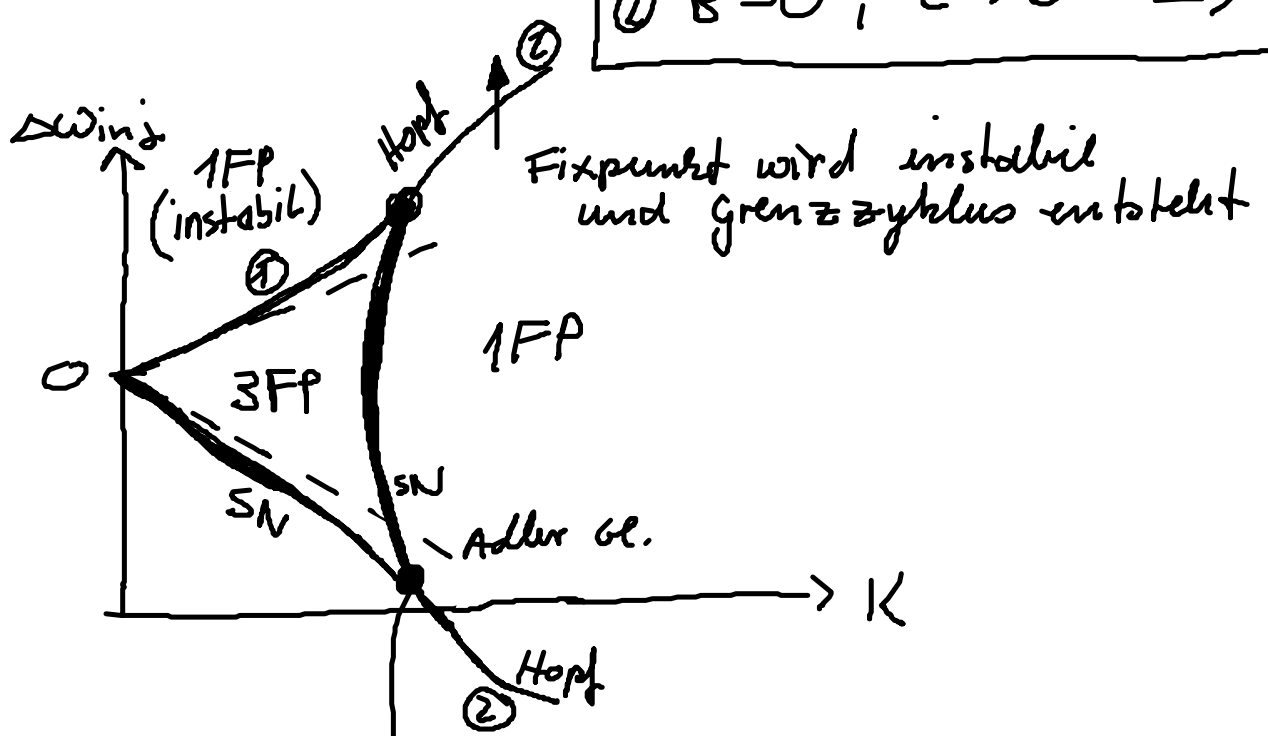 ②
Δω inj
1FP
(instabil)
Hopf
Fixpunkt wird instabil
und Grenzzyklus entsteht
①
1FP
0
3FP
SN
SN
Adler Gl.
K
Hopf
②